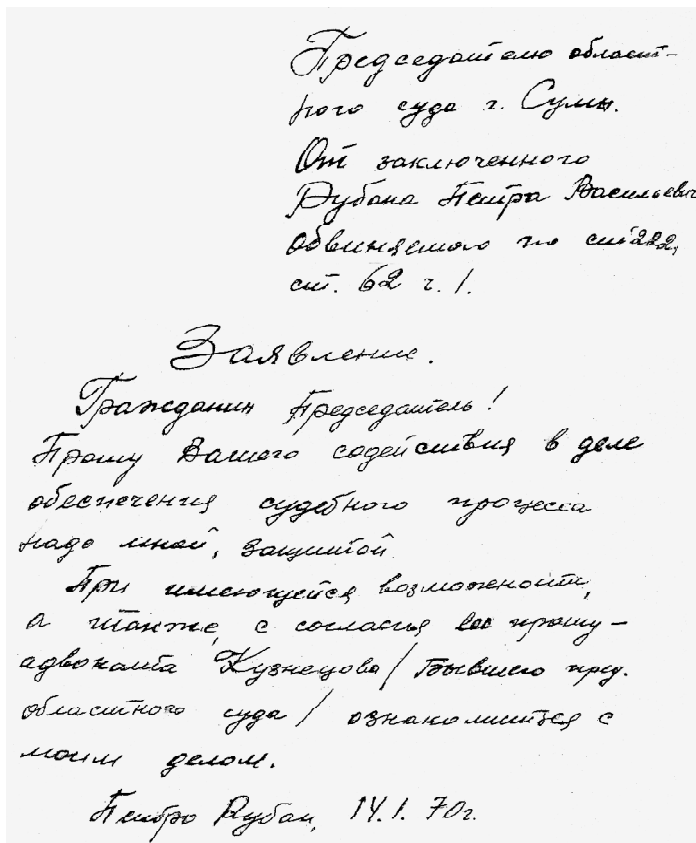 Председателю област-
ного суда г. Сумы.
От заключенного
Рубана Петра Васильевич
обвиняемого по ст 222,
ст. 62 ч. 1.
Заявление.
Гражданин Председатель!
Прошу Вашего содействия в деле
обеспечения судебного процесса
надо мной, защитой.
При имеющейся возможности,
а также, с согласья прошу-
адвоката Кузнецова /бывшего пред.
областного суда/ ознакомиться с
моим делом.
Петро Рубан, 14.1.70г.